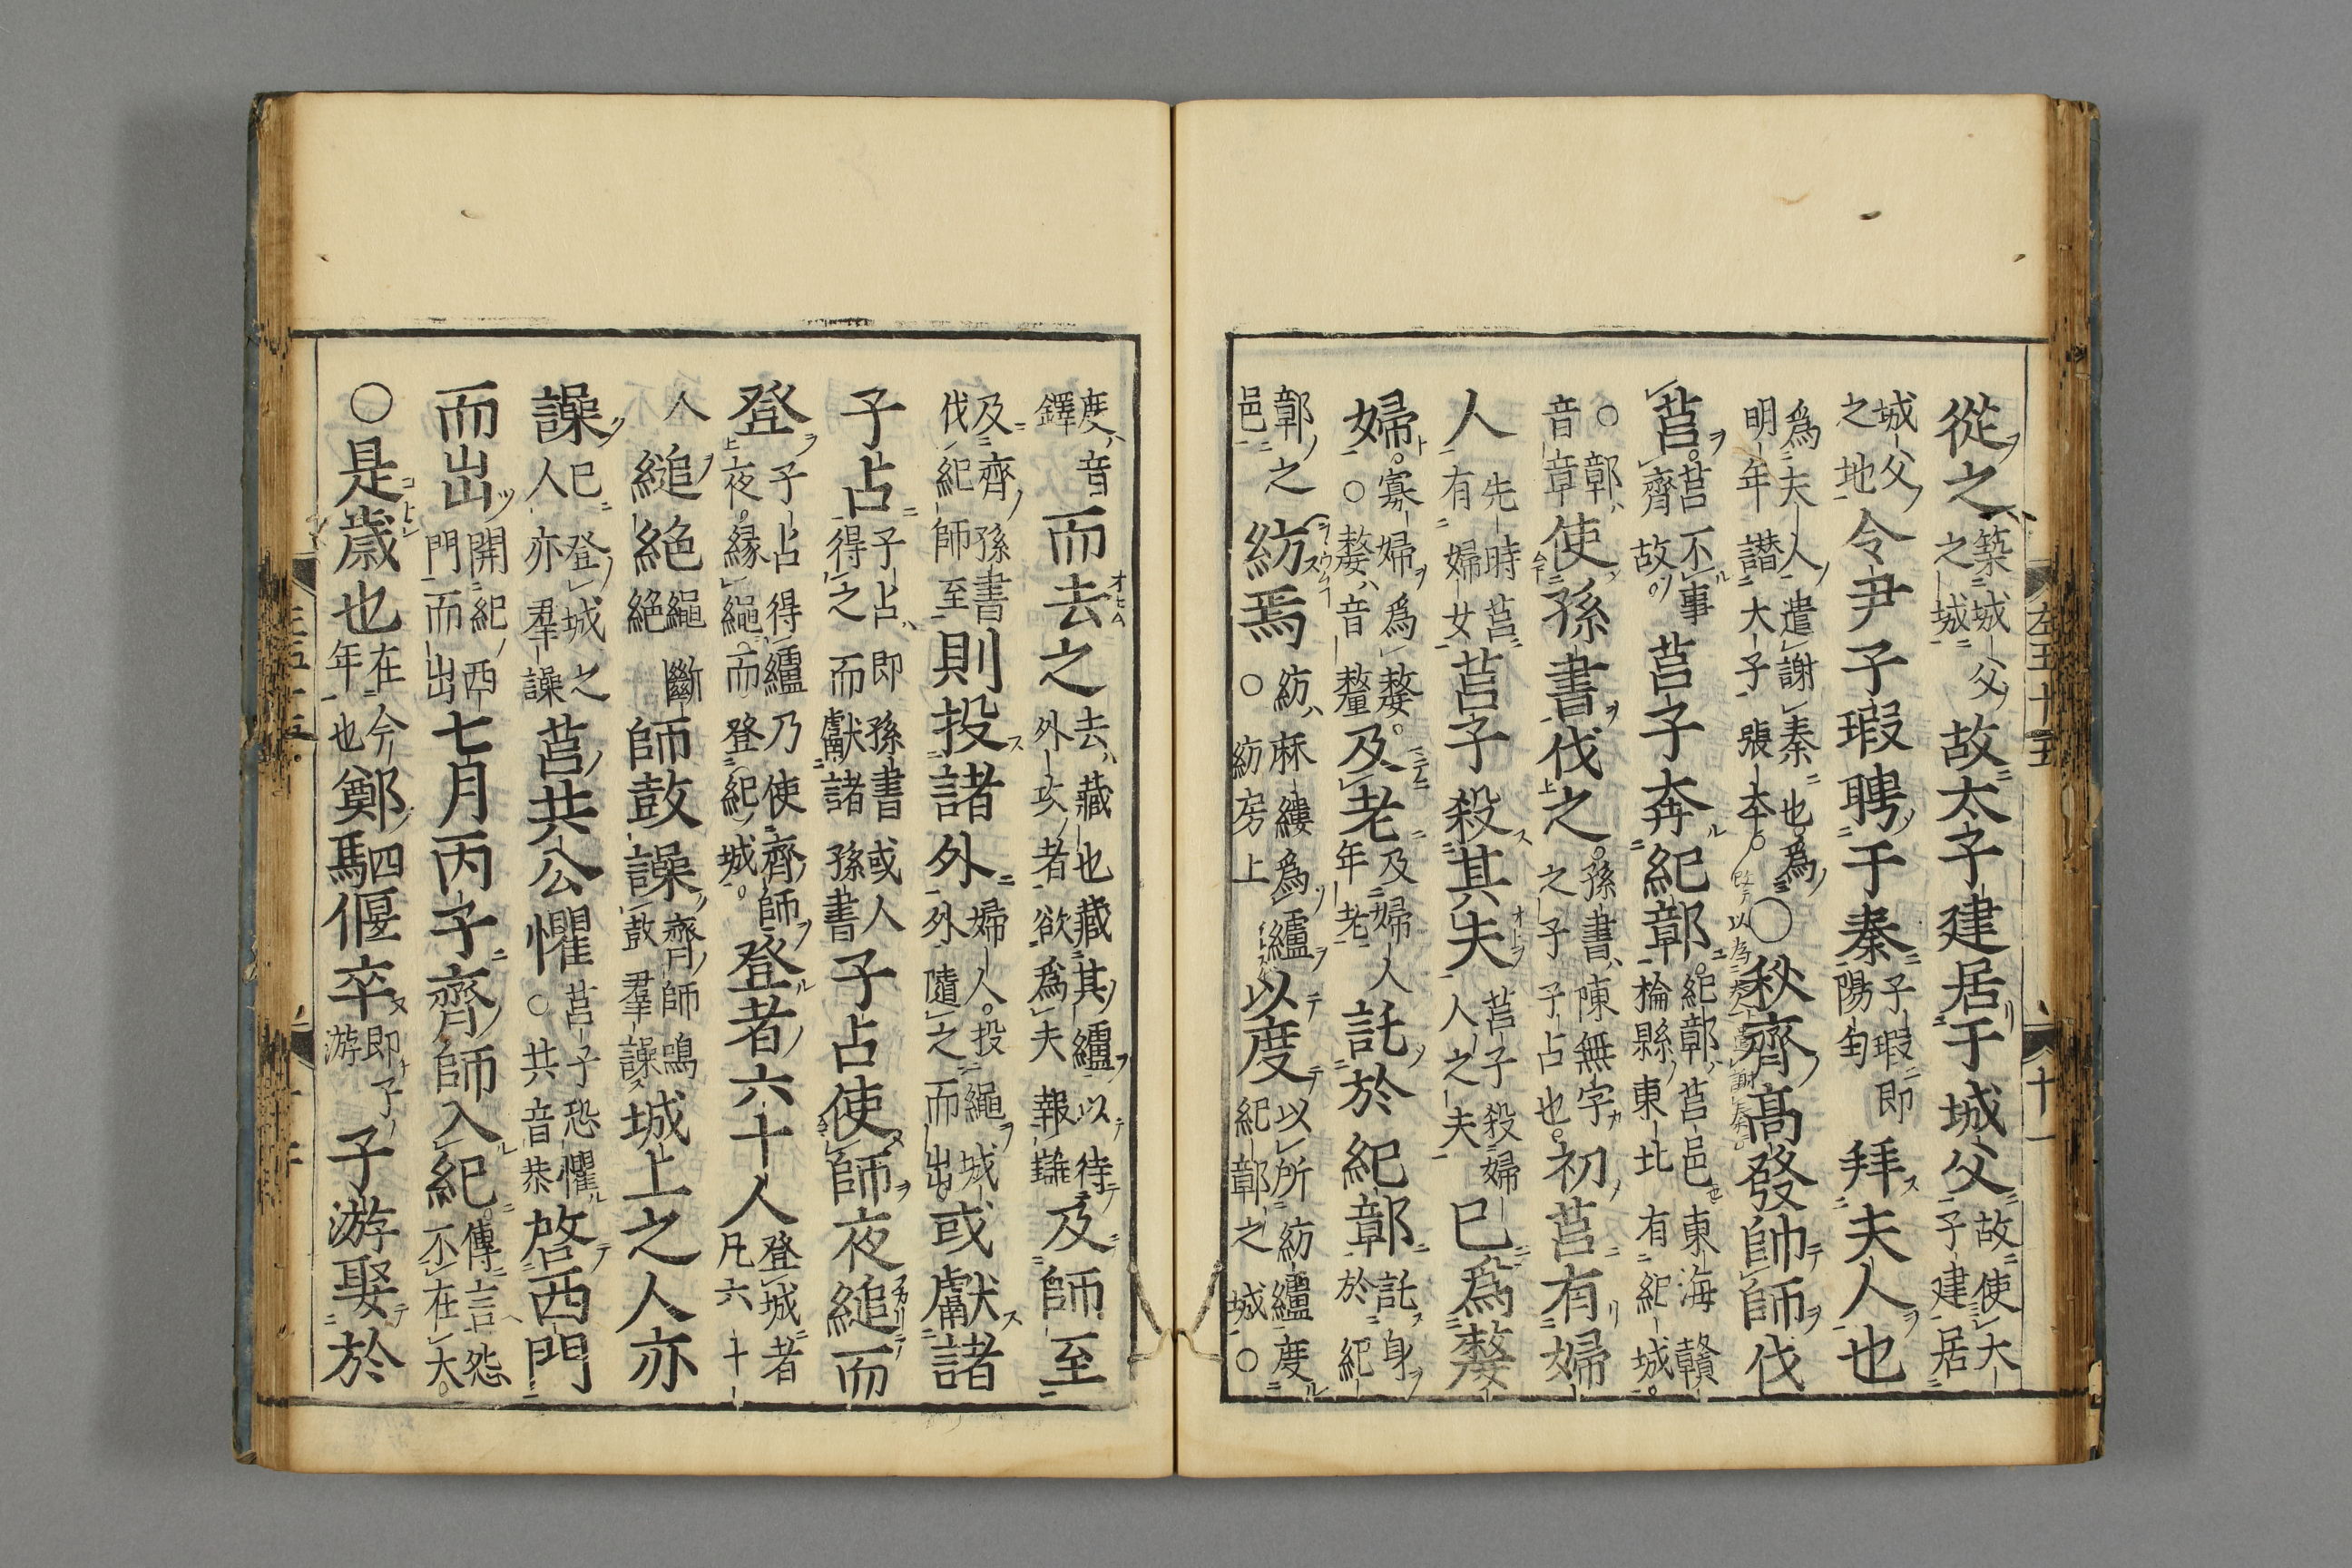 從之築城父之城故太子建居于城父故使大子建居
城父之地令尹子瑕聘于秦子瑕即陽匄拜夫人也
爲夫人遣謝秦也爲明年譖大子張本○秋齊高發帥師伐
莒莒不事齊故莒子奔紀鄣紀鄣莒邑東海贛楡縣東北有紀城
○鄣音章使孫書伐之孫書陳無宇之子子占也初莒有婦
人先時莒有婦女莒子殺其夫莒子殺婦人之夫已爲嫠
婦寡婦爲嫠○嫠音釐及老及婦人年老託於紀鄣託身於紀
鄣之邑紡焉紡麻縷爲纑○紡房上以度以所紡纑度紀鄣之城○
左五十五 十一
度音鐸而去之去藏也藏其纑以待外攻者欲爲夫報讎及師至
及齊孫書伐紀師至則投諸外婦人投繩城外隨之而出或獻諸
子占子占即孫書或人得之而獻諸孫書子占使師夜縋而
登子占得纑乃使齊師夜縁繩而登紀城登者六十人登城者凡六十
人縋絶繩斷絕師鼓譟齊師鳴鼓羣譟城上之人亦
譟巳登城之人亦羣譟莒共公懼莒子恐懼○共音恭啓西門
而出開紀西門而出七月丙子齊師入紀傳言怨不在大
○是歳也在今年也鄭駟偃卒即子游子游娶於